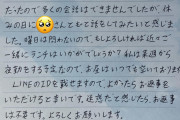 たったので多くの会話はできませんでしたが、は
みの日に さんともっと話をしてみたいと感じま
した。曜日は問わないので、もしよろしければ近々ご
一緒にランチはいかがでしょうか？私は来週から
夜勤をする予定なので、お昼はいつでも空いております
LINEのIDを載せますので、よかったらお返事を
いただけるとまいです。迷惑だと感じたらお返事
は不要です。よろしくお願いします。